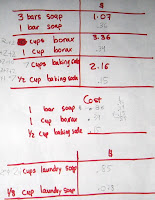 $
3 bars soap 1.07
1 bar soap .36
cups borax 3.36
1 cup borax
cups baking soda 2.16
1/2 cup baking soda .15
Cost
1 bar soap
1 cup borax
1/2 cup baking soda .15
$
cups laundry soap .85
1/8 cup laundry soap